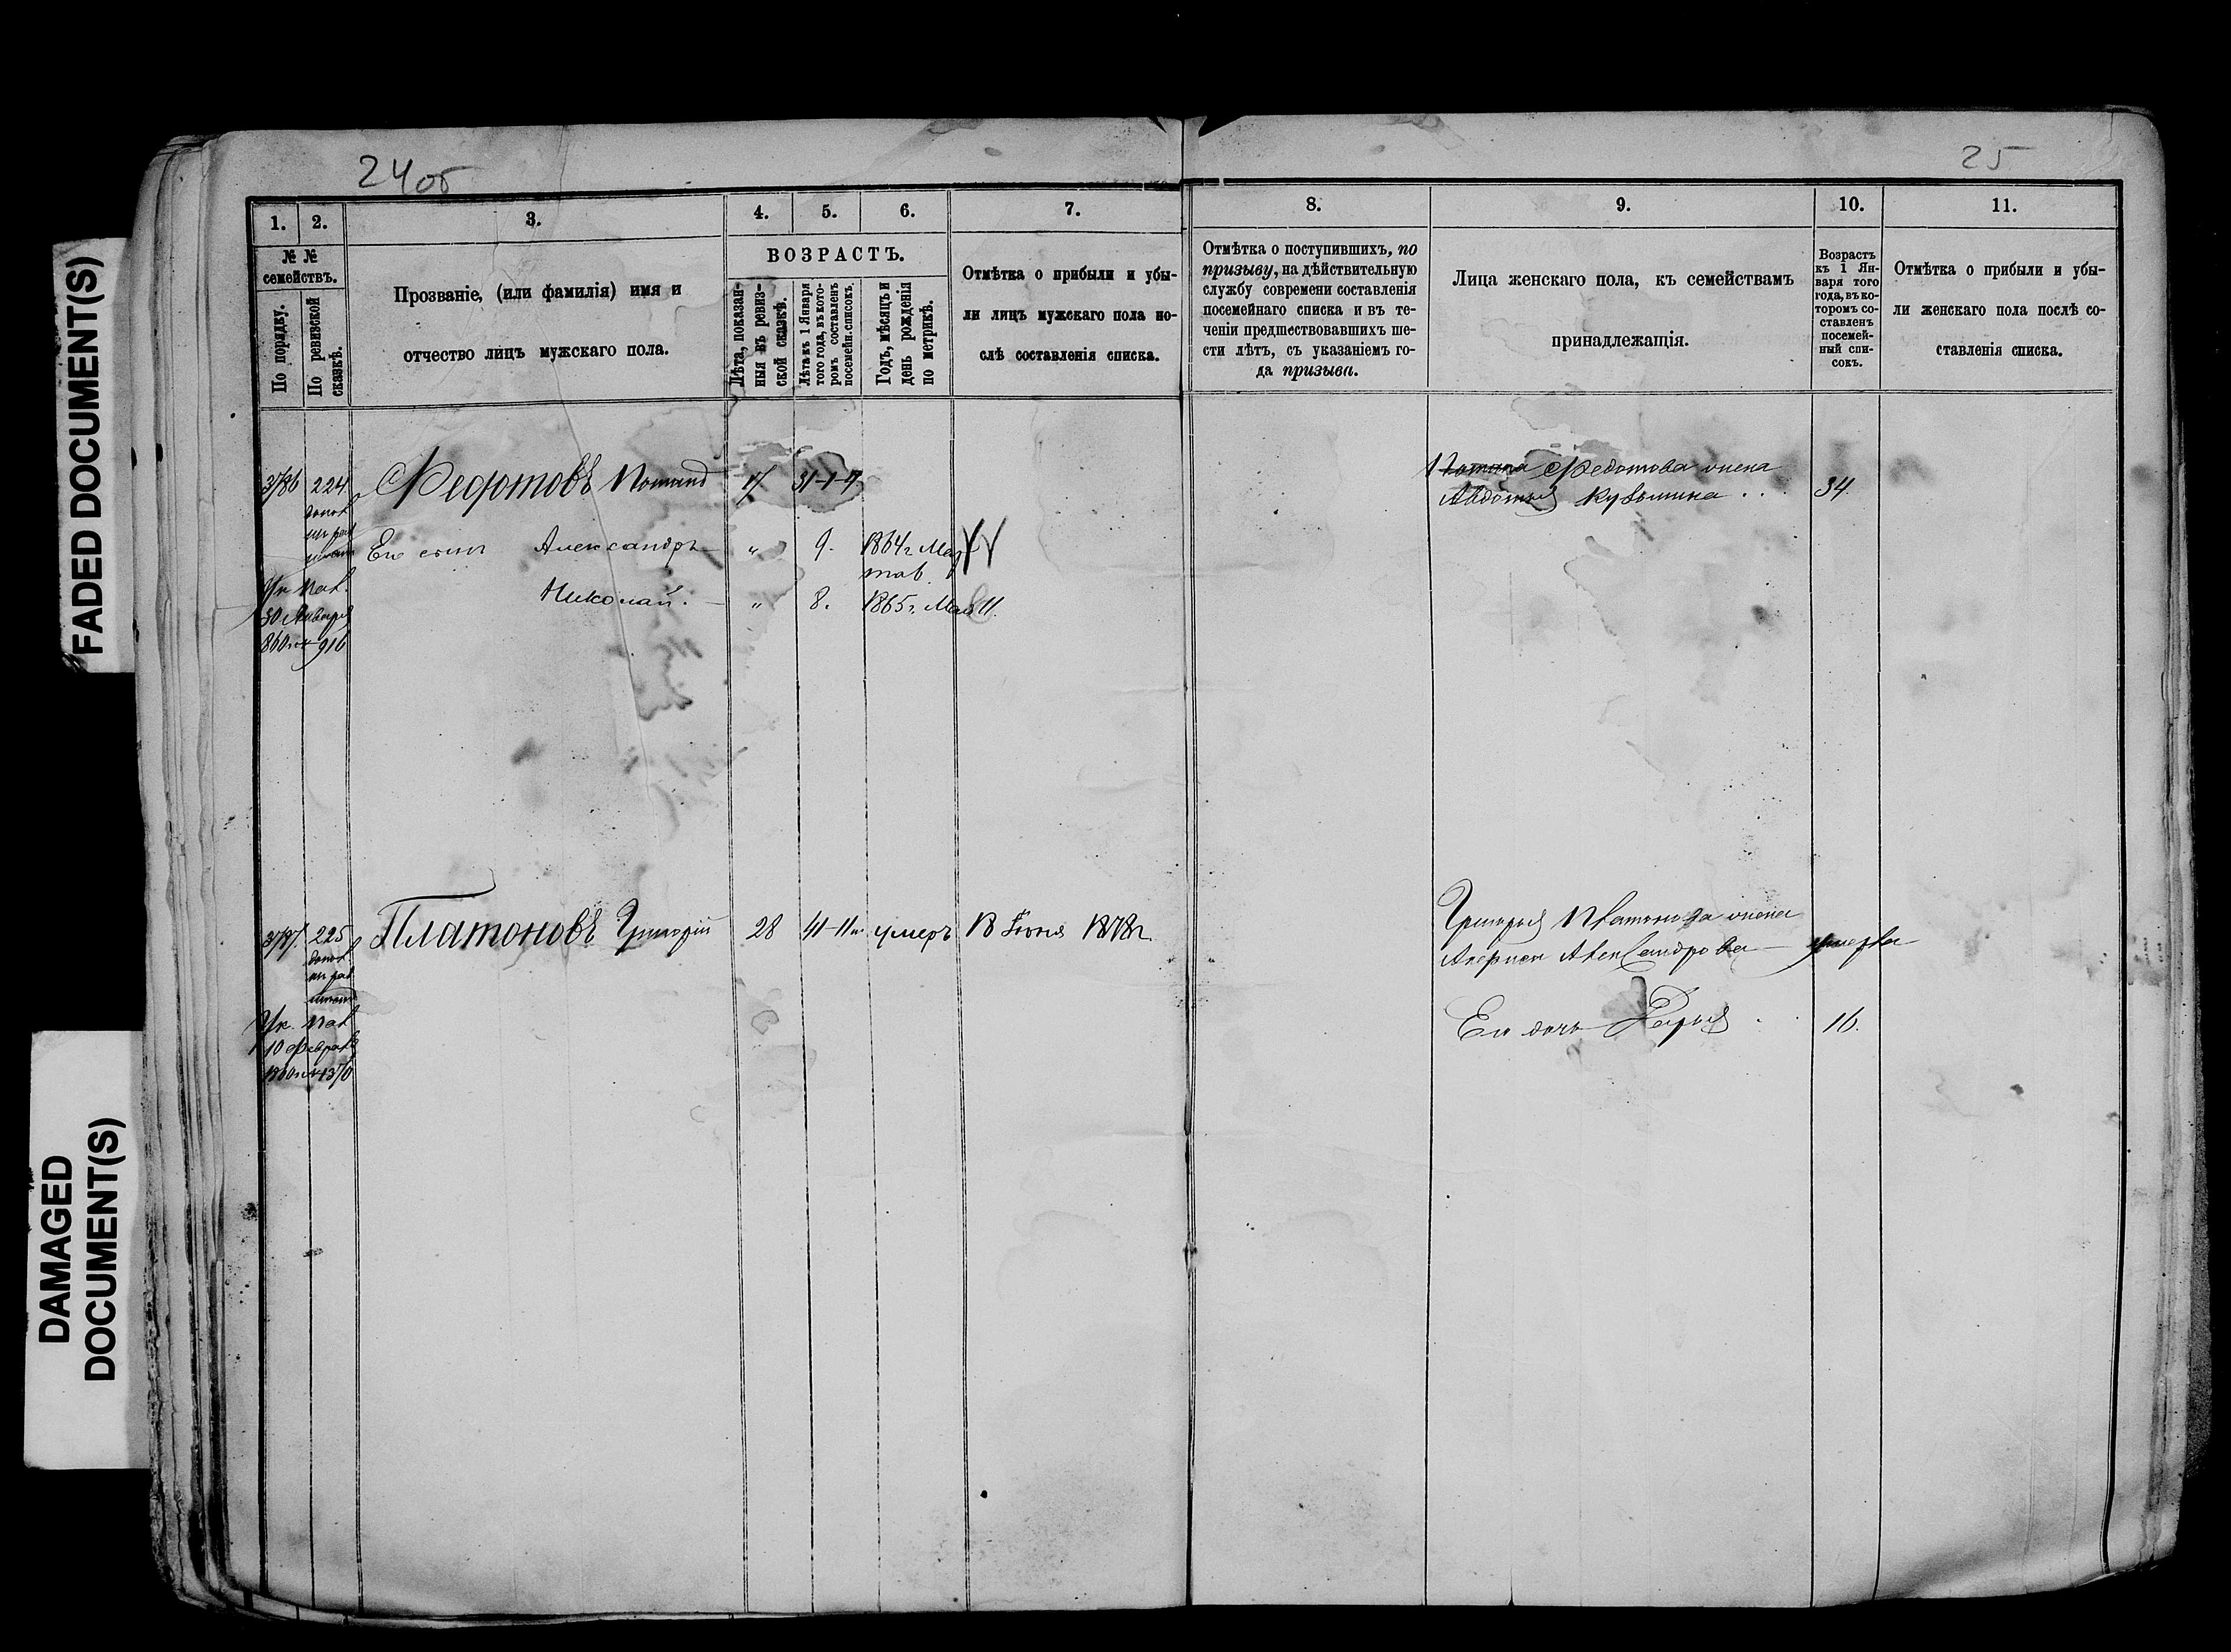 FADED DOCUMENT(S)
DAMAGED
DOCUMENT(S)
24об
25
1.
2.
3.
4.
5.
6.
7.
8.
9.
10.
11.
№ №
семействъ.
По порядку.
По ревизской
сказкѣ.
Прозваніе, (или фамилія) имя и
отчество лицъ мужскаго пола.
ВОЗРАСТЪ.
Лѣта, показан-
ныя въ ревиз-
ской сказкѣ.
Лѣта къ 1 Января
того года, въ кото-
ромъ составленъ
посемейн. списокъ.
Годъ, мѣсяцъ и
день рожденія
по метрикѣ.
Отмѣтка о прибыли и убы-
ли лицъ мужскаго пола по-
слѣ составленія списка.
Отмѣтка о поступившихъ, по
призыву, на дѣйствительную
службу современи составленія
посемейнаго списка и въ те-
ченіи предшествовавшихъ ше-
сти лѣтъ, съ указаніемъ го-
да призыва.
Лица женскаго пола, къ семействамъ
принадлежащія.
Возрастъ
къ 1 Ян-
варя того
года, въ ко-
торомъ со-
ставленъ
посемей-
ный спи-
сокъ.
Отмѣтка о прибыли и убы-
ли женскаго пола послѣ со-
ставленія списка.
224 Федотовъ 17
Федотова жена
Авдотья 34.
Его сынъ Александръ " 9. 1864г
Николай. " 8. 1865г. Мая 11.
30 Января
225 Платоновъ Григорій 28 умеръ 18 Іюня 1878г
Григорья Платонова жена
Александрова умерла
Его дочь Дарья 16.
10 Февраля